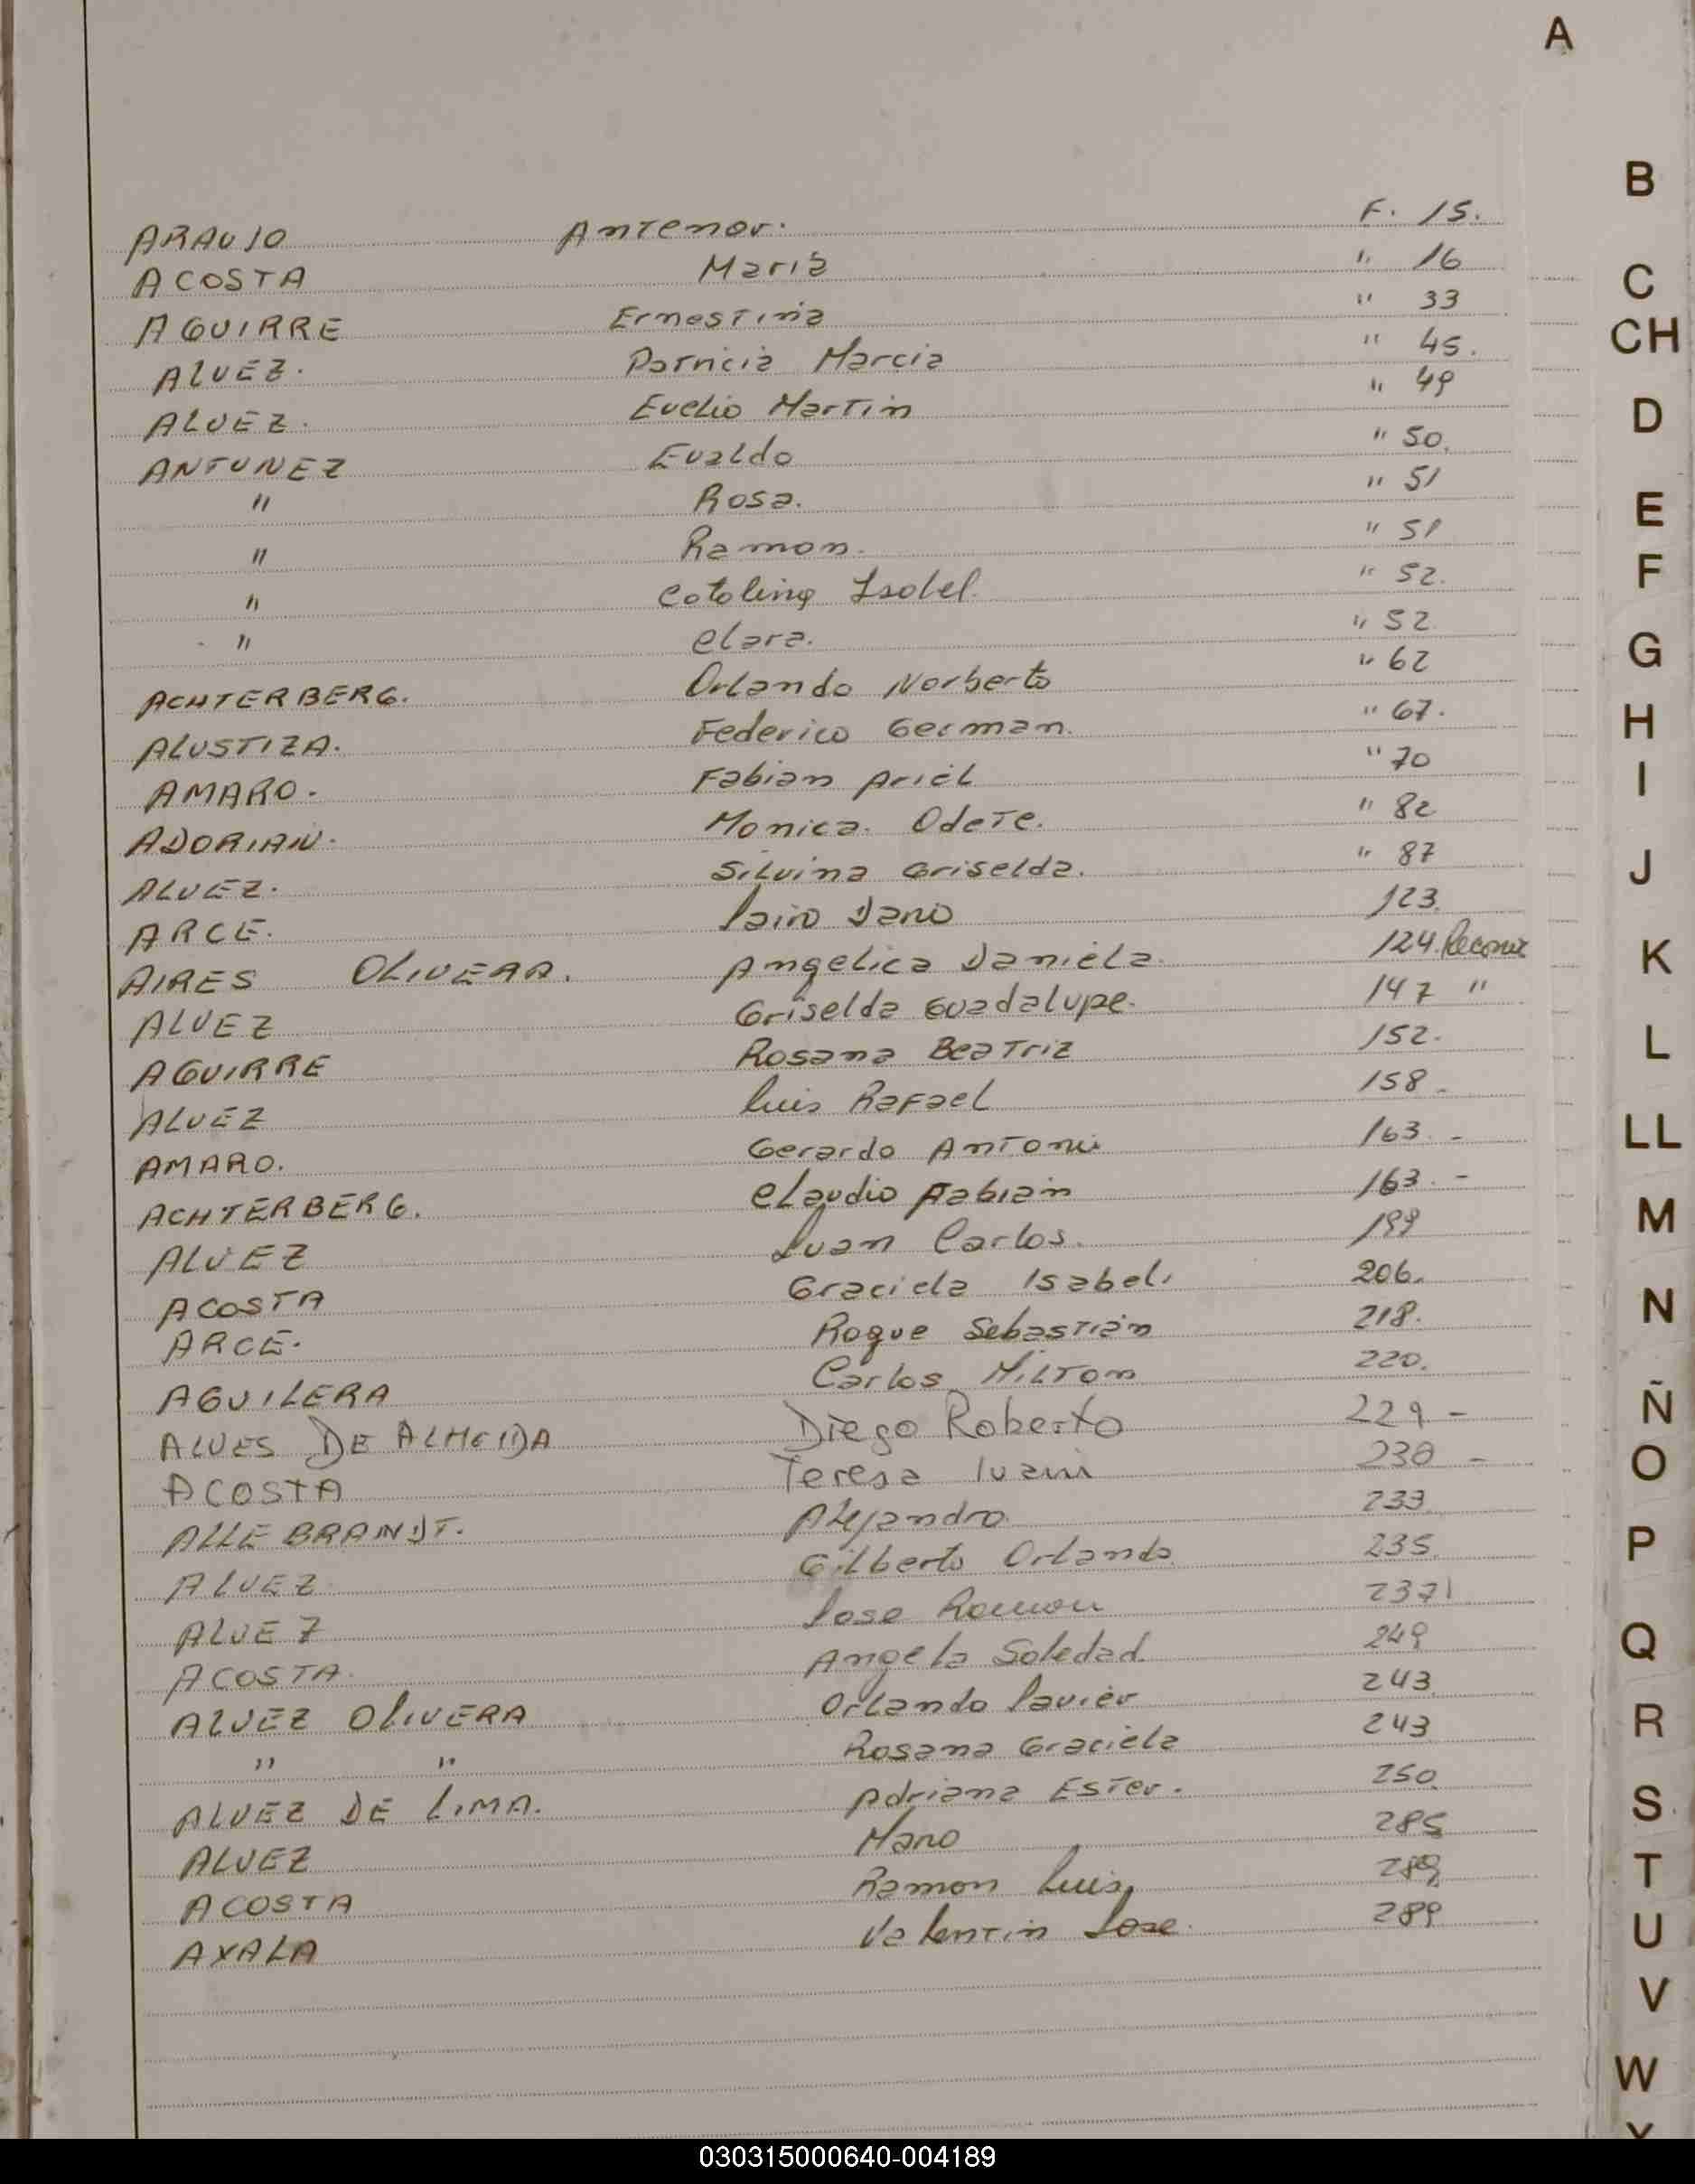 A
ARAUJO Antenor. F. 15.
ACOSTA Maria " 16
AGUIRRE Ernestina " 33
ALVEZ. Patricia Marcia " 45.
ALVEZ. Evelio Martin " 49
ANTUNEZ Evaldo " 50.
" Rosa. " 51
" Ramon. " 51
" Catalina Isabel. " 52.
" Clara. " 52
ACHTERBERG. Orlando Norberto " 62
ALUSTIZA. German Federico " 67.
AMARO. Fabian Ariel " 70
ADORIAN. Monica. Odete. " 82
ALVEZ. Silvina Griselda. " 87
ARCE. Jairo Dario 123.
AIRES OLIVERA. Angelica Daniela. 124.
ALVEZ Griselda Guadalupe. 147 "
AGUIRRE Rosana Beatriz 152.
ALVEZ Luis Rafael 158.
AMARO. Gerardo Antonio 163. -
ACHTERBERG. Claudio Fabian 163. -
ALVEZ Juan Carlos. 199
ACOSTA Graciela Isabel. 206.
ARCE. Roque Sebastián 218.
AGUILERA Carlos Milton 220.
ALVES DE ALMEIDA Diego Roberto 229 -
ACOSTA Teresa 230 -
ALLEBRANDT. Alejandro 233.
ALVEZ Gilberto Orlando 235.
ALVEZ Jose Ramon 237
ACOSTA. Angela Soledad. 249
ALVEZ OLIVERA Orlando Javier 243.
" " Rosana Graciela 243
ALVEZ DE LIMA. Adriana Ester. 250.
ALVEZ Mario 285
ACOSTA Ramon Luis 289
AXALA Valentin Jose. 289
B
C
CH
D
E
F
G
H
I
J
K
L
LL
M
N
Ñ
O
P
Q
R
S
T
U
V
W
030315000640-004189